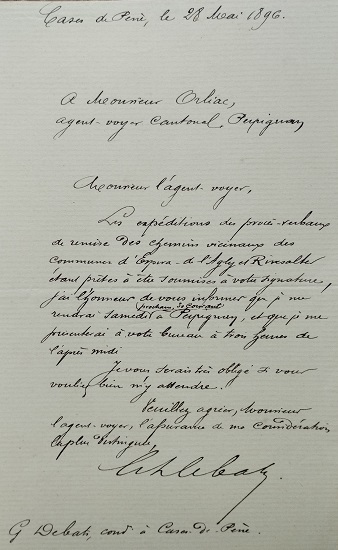 Cases de Pène, le 28 Mai 1896.
A Monsieur Orliac,
agent-voyer Cantonal, Perpignan
Monsieur l'agent-voyer,
Les expéditions des procès-verbaux
de remise des chemins vicinaux des
Communes d'Espira-de-l'Agly et Rivesaltes
étant prêtes à être soumises à votre signature,
j'ai l'honneur de vous informer que je me
prochain, 30 Courant
rendrai Samedi à Perpignan, et que je me
présenterai à votre bureau à trois heures de
l'après midi
Je vous serais très obligé si vous
vouliez bien m'y attendre.
Veuillez agréer, Monsieur
l'agent-voyer, l'assurance de ma Considération
la plus distinguée,
G Debats, cond. à Cases-de-Pène.